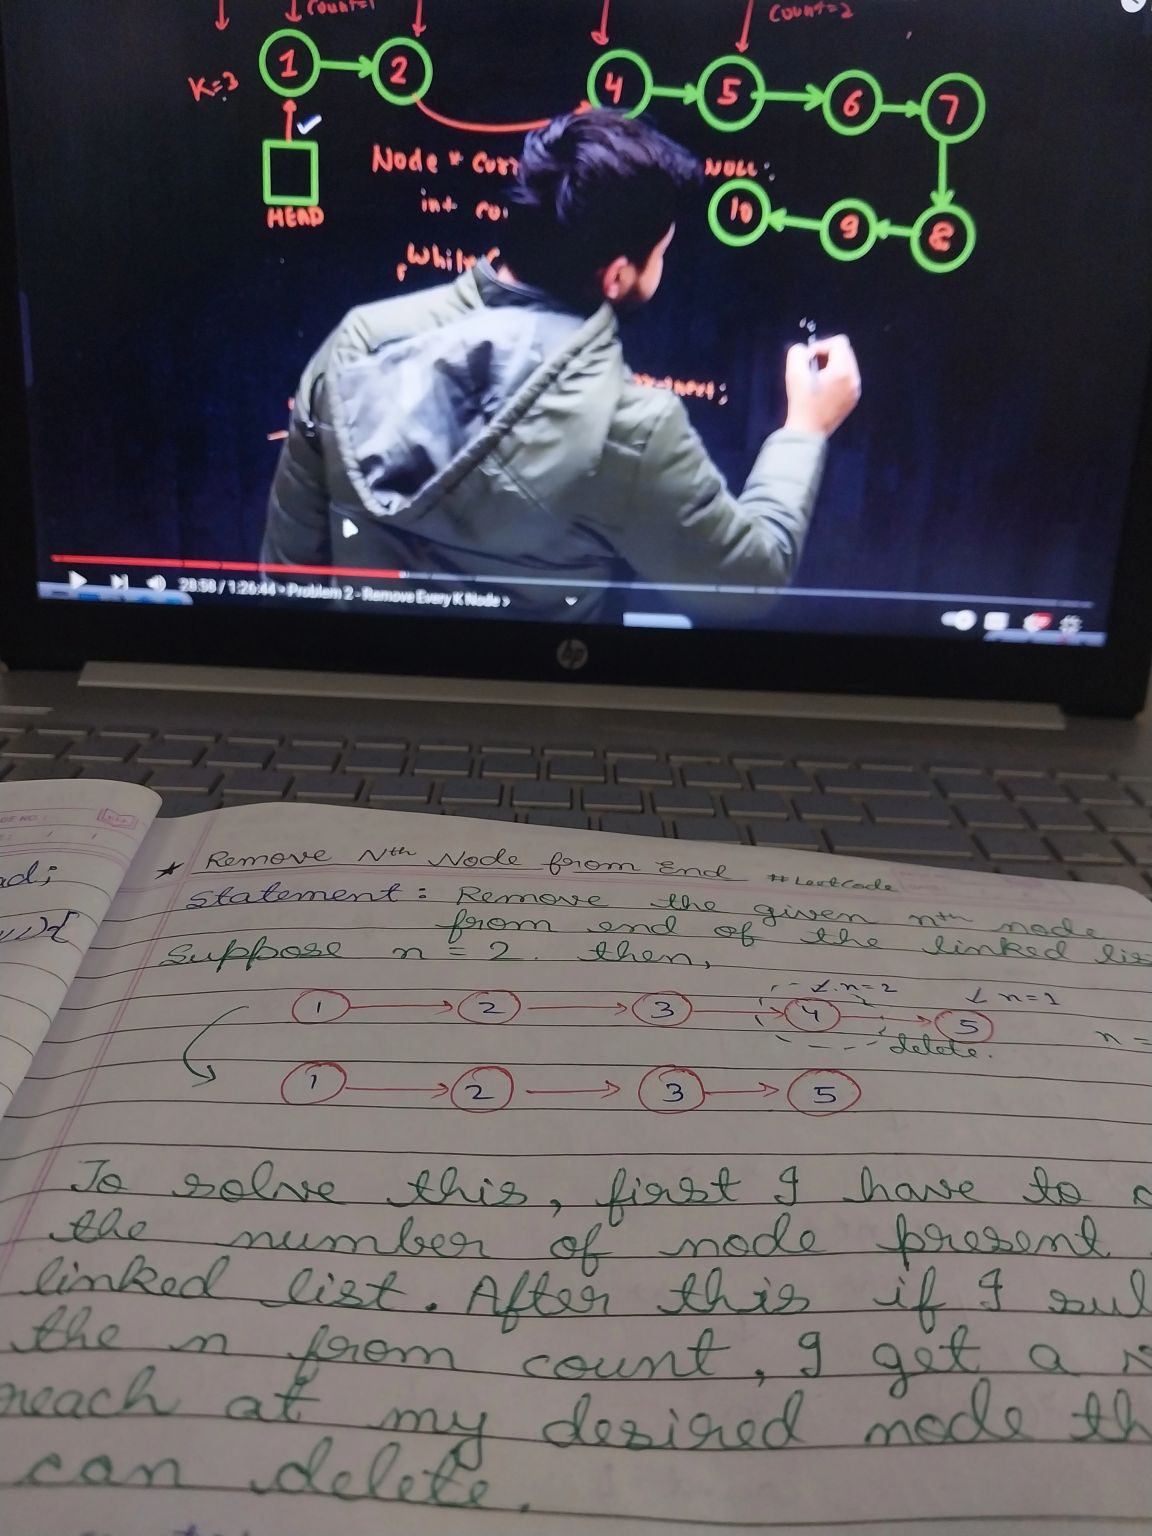 Count=1
Count=2
K=3
1 2 4 5 6 7
HEAD
Node *
NULL;
int
10 9 8
while(
28:58 / 1:26:44 • Problem 2 - Remove Every K Node >
hp
Remove Nth Node from End #LeetCode
Statement: Remove the given nth node
from end of the linked
Suppose n = 2. then,
n=2
n=1
1 2 3 4 5
n =
delete.
1 2 3 5
To solve this, first I have to
the number of node present
linked list. After this if I
the n from count, I get a
reach at my desired node
can delete.